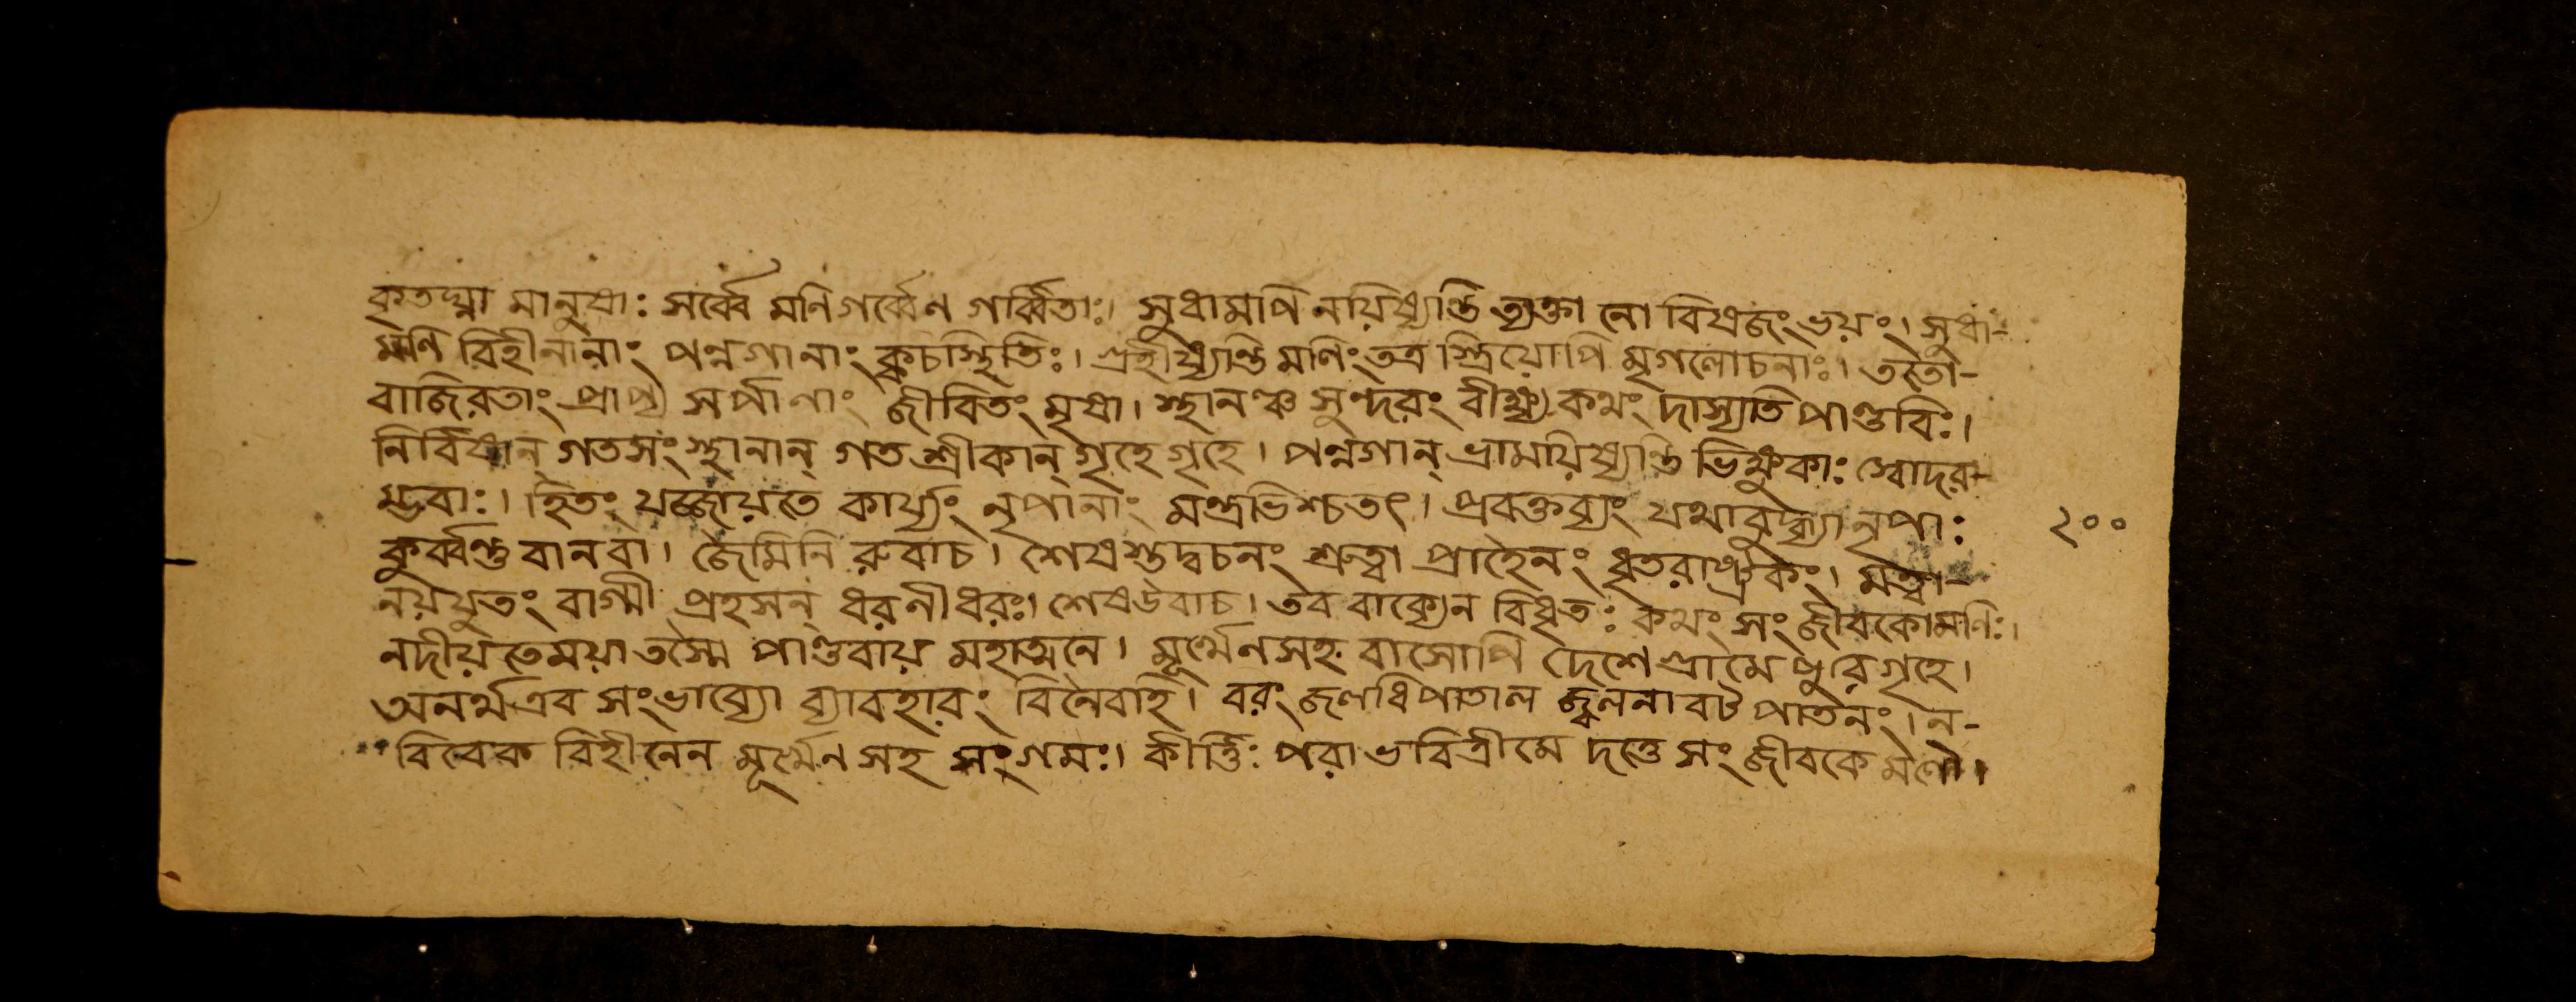 কৃতঘ্না মানুষাঃ সর্ব্বে মণিগর্ব্বেণ গর্ব্বিতাঃ। সুধামপি নয়িষ্যন্তি ত্যক্তা নো বিষজং ভয়ং। সুধা-
মণি বিহীনানাং পন্নগানাং ক্কচস্থিতিঃ। গ্রহীষ্যন্তি মণিং তত্র স্ত্রিয়োপি মৃগলোচনাঃ। ততো-
বাজিরতাং প্রাপ্য সর্পাণাং জীবিতং মৃষা। স্থানঞ্চ সুন্দরং বীক্ষ্য কথং দাস্যতি পাণ্ডবিঃ।
নির্বিষান্ গতসংস্থানান্ গতশ্রীকান্ গৃহে গৃহে। পন্নগান্ ভ্রাময়িষ্যন্তি ভিক্ষুকাঃ স্বোদর-
ম্ভবাঃ। হিতং যজ্জায়তে কার্য্যং নৃপানাং মন্ত্রভিশ্চতৎ। প্রবক্তব্যং যথাবুদ্ধ্যা নৃপাঃ ২০০
কুর্ব্বন্তু বানবা। জৈমিনি রুবাচ। শেষস্তদ্বচনং শ্রুত্বা প্রাহৈনং ধৃতরাষ্ট্রকং। মত্বা-
নয়যুতং বাগ্মী প্রহসন্ ধরনীধরঃ। শেষউবাচ। তব বাক্যেন বিধৃতঃ কথং সংজীবকোমণিঃ।
নদীয়তেময়া তস্মৈ পাণ্ডবায় মহাত্মনে। মূর্খেনসহ বাসোপি দেশে গ্রামে পুরে গৃহে।
অনর্থএব সংভাব্যো ব্যাবহারং বিনৈবাহি। বরং জলধিপাতাল জ্বলনাবট পাতনং। ন-
বিবেক বিহীনেন মূর্খেন সহ সংগমঃ। কীর্ত্তিঃ পরা ভবিত্রীমে দত্তে সংজীবকে মণৌ।